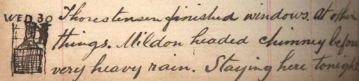 WED 30 Thorestensen finished windows. at other
things. Mildon headed chimney before
very heavy rain. Staying here tonight